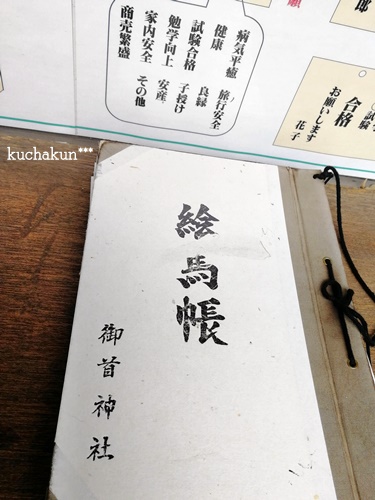 郎
願
病気平癒 旅行安全
健康 良縁
試験合格 子授け
勉学向上 安産
家内安全 その他
商売繁盛
試験
合格
お願いします
花子
kuchakun***
絵馬帳
御首神社